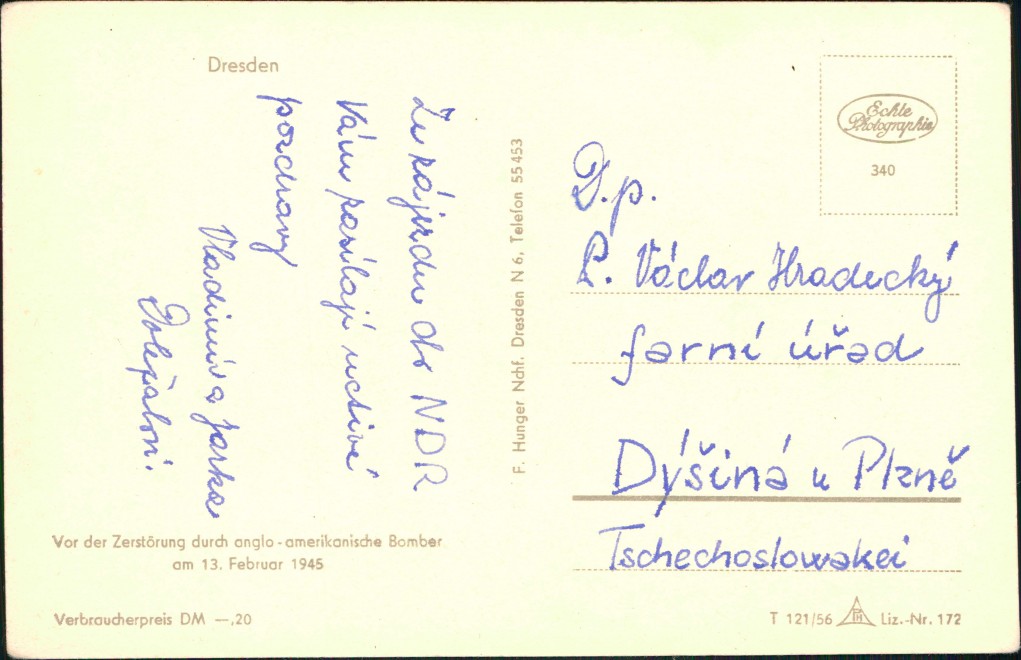 Dresden
Ze zájezdu do NDR
Vám zasílají uctivé
pozdravy
Vladimír a Jarka
F. Hunger Nchf. Dresden N 6, Telefon 55 453
Echte
Photographie
340
D.p.
P. Václav Hradecký
farní úřad
Dýšiná u Plzně
Tschechoslowakei
Vor der Zerstörung durch anglo-amerikanische Bomber
am 13. Februar 1945
Verbraucherpreis DM —,20
T 121/56 PH Liz.-Nr. 172